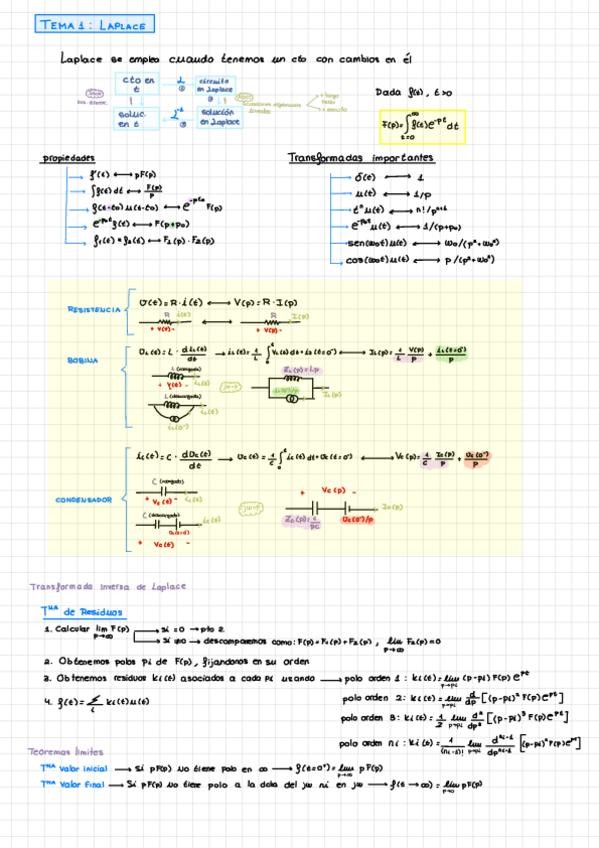 TEMA 1: LAPLACE
Laplace se emplea cuando tenemos un cto con cambios en él
cto en t
L
circuito en Laplace
soluc. en t
L⁻¹
solución en Laplace
ecuaciones algebraicas lineales
Dada f(t), t>0
F(p)=∫_{t=0}^{∞} f(t)e^{-pt}dt
propiedades
f'(t) ↔ pF(p)
∫f(t)dt ↔ F(p)/p
f(t-t₀)u(t-t₀) ↔ e^{-pt₀} F(p)
e^{-p₀t}f(t) ↔ F(p+p₀)
f₁(t) * f₂(t) ↔ F₁(p)·F₂(p)
Transformadas importantes
δ(t) ↔ 1
u(t) ↔ 1/p
tⁿu(t) ↔ n!/pⁿ⁺¹
e^{-p₀t}u(t) ↔ 1/(p+p₀)
sen(ω₀t)u(t) ↔ ω₀/(p²+ω₀²)
cos(ω₀t)u(t) ↔ p/(p²+ω₀²)
RESISTENCIA
v(t)=R·i(t) ↔ V(p)=R·I(p)
R i(t)
+ v(t) -
R I(p)
+ V(p) -
BOBINA
v_L(t)=L· di_L(t)/dt → i_L(t)=1/L ∫₀ᵗ v_L(t)dt+i_L(t=0⁻) ↔ I_L(p)=1/L V(p)/p + i_L(t=0⁻)/p
i_L(t)
Z_L(p)=Lp
I_L(p)
i_L(t)
i_L(0⁻)
CONDENSADOR
i_c(t)=C· dv_c(t)/dt → v_c(t)=1/C ∫₀ᵗ i_c(t)dt+v_c(t=0⁻) ↔ V_c(p)=1/C I_c(p)/p + v_c(0⁻)/p
i_c(t)
+ V_c(t) -
i_c(t)
+ V_c(t) -
+ V_c(p) -
I_c(p)
Z_c(p)=1/pC
v_c(0⁻)/p
Transformada Inversa de Laplace
Tᵐᵃ de Residuos
1. Calcular lim_{p→∞} F(p)
si =0 → pto 2
si ≠0 → descomponemos como: F(p)=F₁(p)+F₂(p), lim_{p→∞} F₂(p)=0
2. Obtenemos polos pi de F(p), fijandonos en su orden
3. Obtenemos residuos ki(t) asociados a cada pi usando → polo orden 1: ki(t)=lim_{p→pi} (p-pi)F(p)e^{pt}
polo orden 2: ki(t)=lim_{p→pi} d/dp [(p-pi)²F(p)e^{pt}]
4. f(t)=Σ_i ki(t)u(t)
polo orden 3: ki(t)=1/2 lim_{p→pi} d²/dp² [(p-pi)³F(p)e^{pt}]
polo orden ni: ki(t)=1/(ni-1)! lim_{p→pi} d^{ni-1}/dp^{ni-1} [(p-pi)^{ni}F(p)e^{pt}]
Teoremas límites
Tᵐᵃ Valor inicial → Si pF(p) no tiene polo en ∞ → f(t=0⁺)=lim_{p→∞} pF(p)
Tᵐᵃ Valor final → Si pF(p) no tiene polo a la dcha del jw ni en jw → f(t→∞)=lim_{p→0} pF(p)